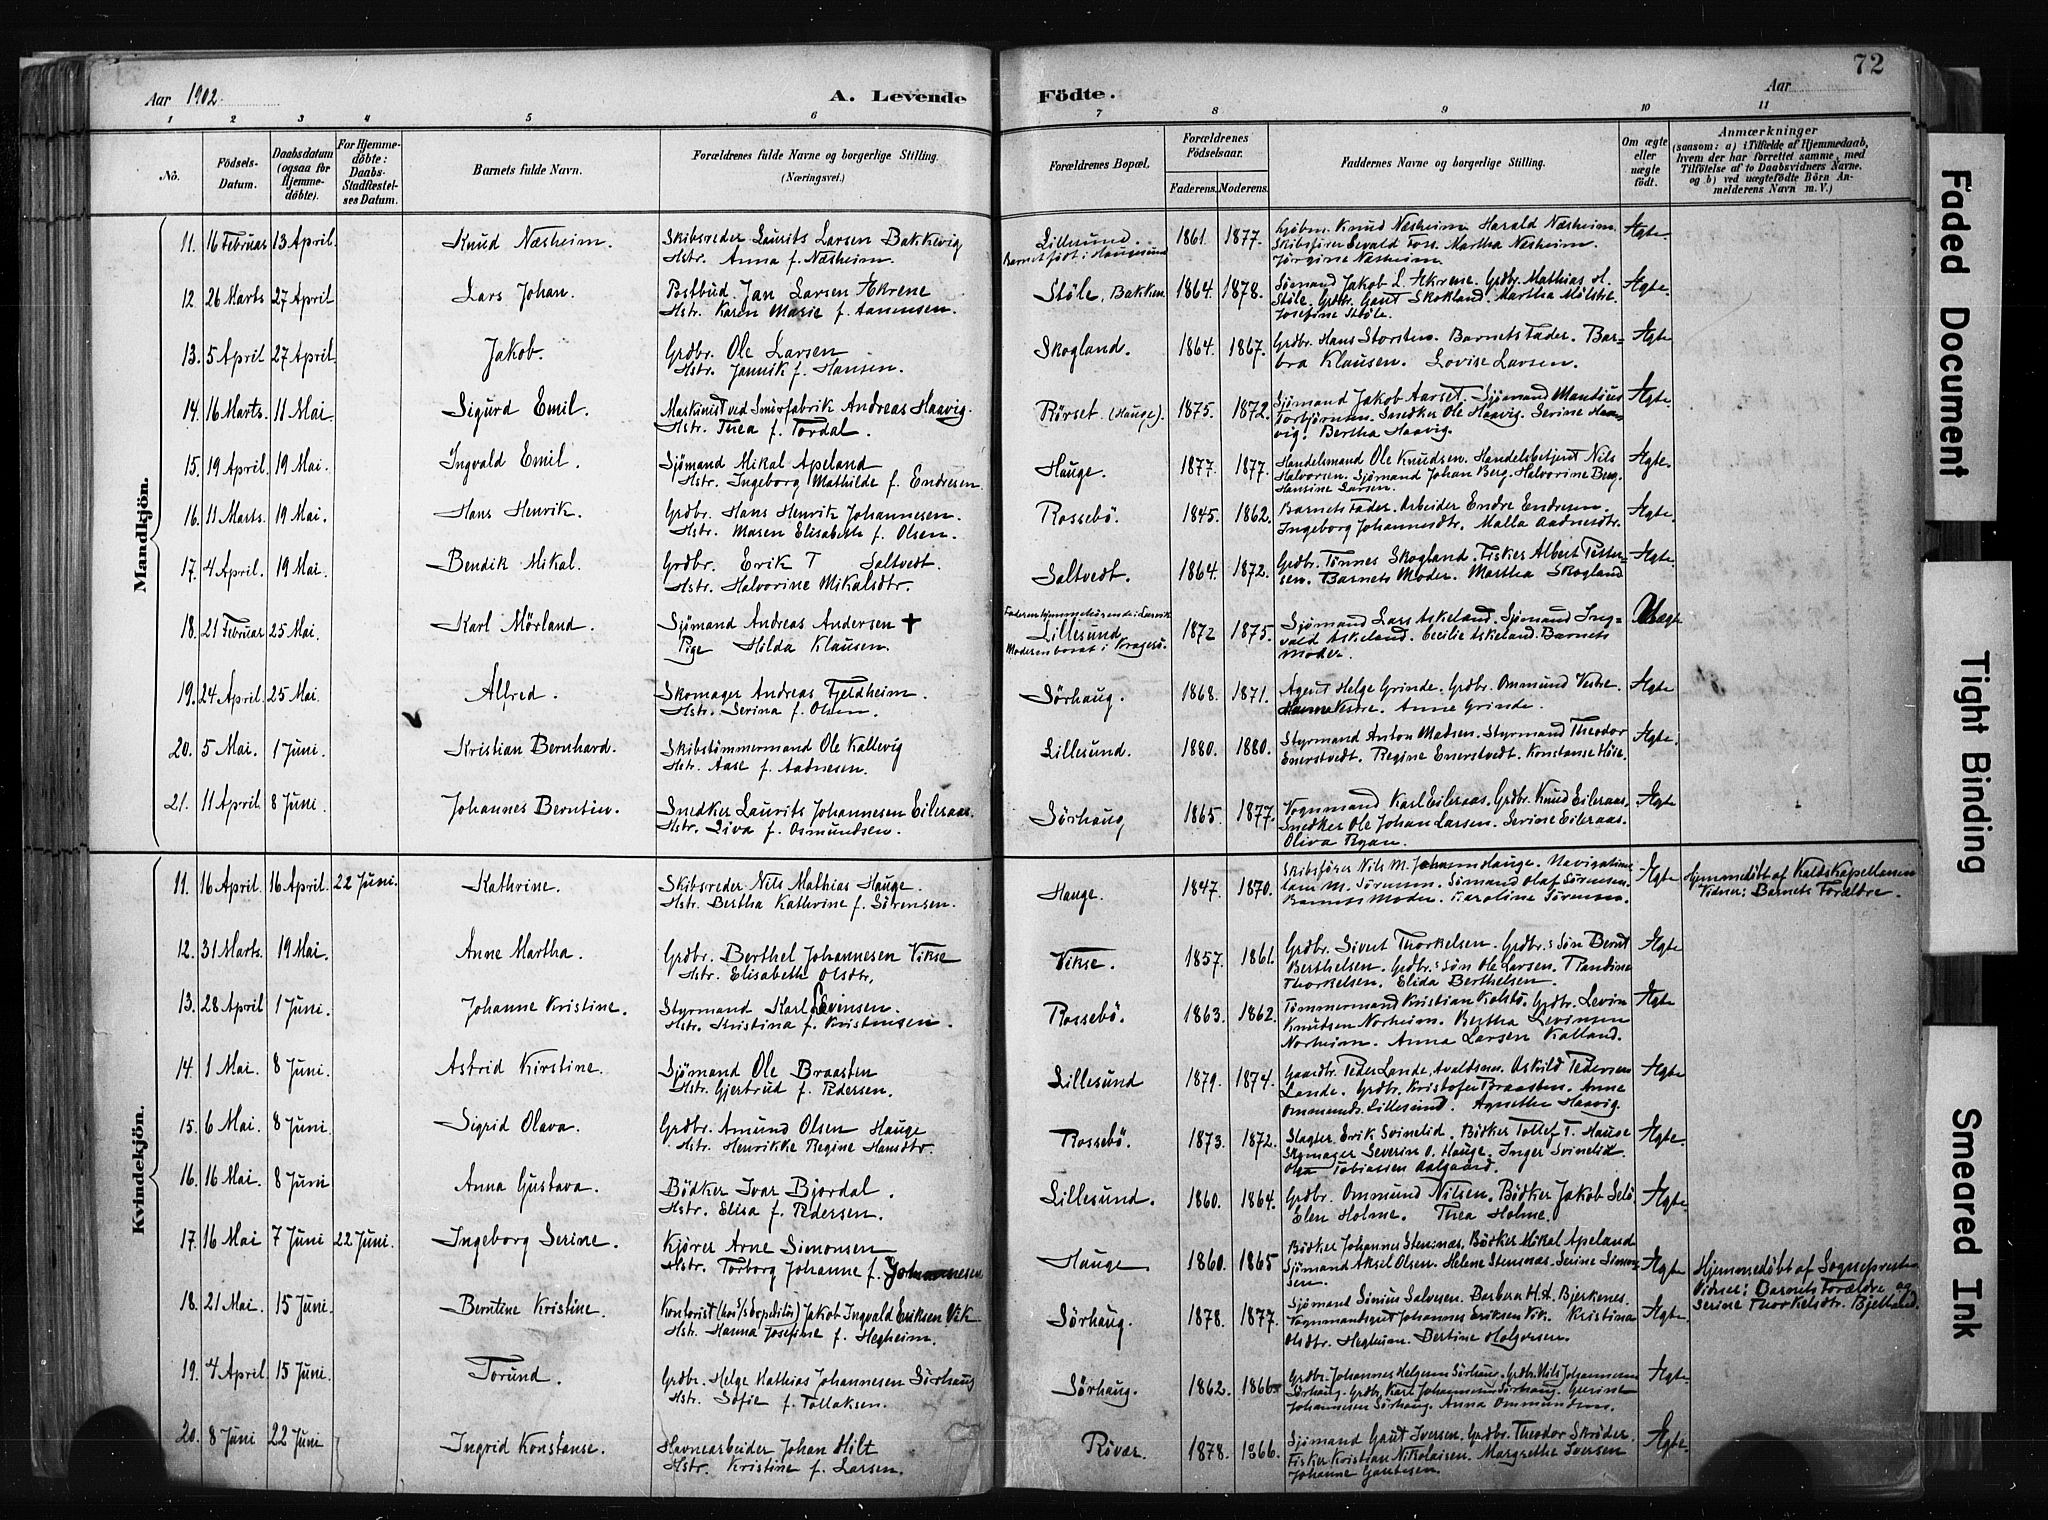 72
Aar 1902.
A. Levende
Födte.
Aar
1 2 3 4 5 6 7 8 9 10 11
No.
Födsels-Datum.
Daabsdatum (ogsaa for Hjemme-döbte).
For Hjemme-döbte: Daabs-Stadfæstel-ses Datum.
Barnets fulde Navn.
Forældrenes fulde Navne og borgerlige Stilling. (Næringsvei.)
Forældrenes Bopæl.
Forældrenes Födselsaar.
Faderens. Moderens.
Faddernes Navne og borgerlige Stilling.
Om ægte eller uægte födt.
Anmærkninger
(saasom: a) i Tilfælde af Hjemmedaab,
hvem der har forrettet samme, med
Tilföielse af to Daabsvidners Navne.
og b) ved uægtefödte Börn An-
melderens Navn m. V.)
Mandkjön.
11. 16 Februar 13 April. Knud Næsheim. Skibsreder Laurits Larsen Bakkevig
Hstr. Anna f. Næsheim.
Lillesund.
Barnet født i Haugesund
1861. 1877. Knud Næsheim. Harald Næsheim.
Skibsfører Sevald Foss. Martha Næsheim.
Jørgine Næsheim.
Ægte.
12. 26 Marts 27 April Lars Johan. Postbud. Jan Larsen Ækrene
Hstr. Karen Marie f. Aanensen.
Støle, Bakken 1864. 1878. Sømand Jakob L. Ækrene. Grdbr. Mathias H.
Støle. Grdbr. Gaut Skokland. Martha Mølstre.
Josefine Støle.
Ægte.
13. 5 April 27 April Jakob. Grdbr. Ole Larsen
Hstr. Jannik f. Hansen.
Skogland. 1864. 1867. Grdbr. Hans Storsten. Barnets Fader. Bar-
bra Klausen. Lovise Larsen.
Ægte
14. 16 Marts. 11 Mai Sigurd Emil. Maskinist ved Smørfabrik Andreas Haavig.
Hstr. Thea f. Tordal.
Rörset (Hauge). 1875. 1872. Sjømand Jakob Aarset. Sjømand Mandius
Torbjørnsen. Snedker Ole Haavig. Serine Haa-
vig. Bertha Haavig.
Ægte.
15. 19 April. 19 Mai. Ingvald Emil. Sjømand Mikal Apeland
Hstr. Ingeborg Mathilde f. Endresen.
Hauge. 1877. 1877. Handelsmand Ole Knudsen. Handelsbetjent Nils
Halvorsen. Sjømand Johan Berg. Halvorine Berg.
Hansine Larsen.
Ægte.
16. 11 Marts. 19 Mai. Hans Henrik. Grdbr. Hans Henrik Johannesen.
Hstr. Maren Elisabeth f. Olsen.
Rossebö. 1845. 1862. Barnets Fader. Arbeider Endre Endresen.
Ingeborg Johannesdtr. Malla Aadnesdtr.
Ægte.
17. 4 April. 19 Mai. Bendik Mikal. Grdbr. Erik T Saltvedt.
Hstr. Halvorine Mikalsdtr.
Saltvedt. 1864. 1872. Grdbr. Tönnes Skogland. Fisker Albert Peter-
sen. Barnets Moder. Martha Skogland
Ægte
18. 21 Februar 25 Mai. Karl Mörland. Sjömand Andreas Andersen ✝
Pige Hilda Klausen.
Faderen hjemmehörende i Larvik
Lillesund
Moderen boret i Kragerö.
1872 1875. Sjømand Lars Askeland. Sjømand Ing-
vald Askeland. Cecilie Askeland. Barnets
Moder.
Uægte
19. 24 April. 25 Mai. Alfred. Skomager Andreas Fjeldheim.
Hstr. Serina f. Olsen.
Sörhaug. 1868. 1871. Agent Helge Grinde. Grdbr. Ommund Vestre.
Vestre. Anne Grinde.
Ægte
20. 5 Mai. 1 Juni. Kristian Bernhard. Skibstömmermand Ole Kallevig
Hstr. Aase f. Aadnesen.
Lillesund. 1880. 1880. Styrmand Anton Madsen. Styrmand Theodor
Enerstvedt. Regine Enerstvedt. Konstanse Höie.
Ægte.
21. 11 April. 8 Juni. Johannes Berntin. Snedker Laurits Johannesen Eileraas.
Hstr. Siva f. Osmundsen.
Sörhaug 1865. 1877. Vognmand Karl Eileraas. Grdbr. Knud Eileraas.
Snedker Ole Johan Larsen. Serine Eileraas.
Oliva Ryan.
Ægte.
Kvindekjön.
11. 16 April. 16 April. 22 Juni. Kathrine. Skibsreder Nils Mathias Hauge.
Hstr. Bertha Kathrine f. Sörensen.
Hauge. 1847. 1870. Skibsförer Nils M. Hauge.
M. Sörensen. Sömand Olaf Sörensen.
Barnets Moder. Karoline Sörensen.
Ægte Hjemmedöbt af
Vidner: Barnets Forældre.
12. 31 Marts. 19 Mai. Anne Martha. Grdbr. Berthel Johannesen Vikse
Hstr. Elisabeth Olsdtr.
Vikse. 1857. 1861. Grdbr. Sivert Thorkelsen. Grdbr.s Sön Bernt
Berthelsen. Grdbr.s Sön Ole Larsen. Randine
Thorkelsen. Elida Berthelsen.
Ægte
13. 28 April 1 Juni. Johanne Kristine. Styrmand Karl Levinsen.
Hstr. Kristina f. Kristensen.
Rossebö. 1863. 1862. Tömmermand Kristian Kolstö. Grdbr. Levin
Knudsen Norheim. Bertha Levinsen
Norheim. Anna Larsen Kalland.
Ægte
14. 1 Mai. 8 Juni. Astrid Kirstine. Sjömand Ole Braasten
Hstr. Gjertrud f. Pedersen.
Lillesund 1879. 1874. Gaardbr. Peder Lande, Avaldsnes. Oskild Pedersen
Lande. Grdbr. Kristofer Braasten. Anne
Ommunds. Lillesund. Agnethe Haavig.
Ægte
15. 6 Mai. 8 Juni. Sigrid Olava. Grdbr. Amund Olsen Hauge
Hstr. Henrikke Regine Hansdtr.
Rossebö. 1873. 1872. Slagter Erik Svinelid. Bödker Tollef T. Hauge
Skomager Severin O. Hauge. Inger Svinelid.
Tobiasien Aalgaard.
Ægte.
16. 16 Mai. 8 Juni Anna Gustava. Bödker Ivar Bjordal.
Hstr. Elisa f. Pedersen.
Lillesund. 1860. 1864. Grdbr. Ommund Nilsen. Bödker Jakob Selö
Elen Holme. Thea Holme.
Ægte.
17. 16 Mai 7 Juni 22 Juni. Ingeborg Serine. Kjörer Arne Simonsen
Hstr. Torborg Johanne f. Johannesen
Hauge 1860. 1865 Bödker Johannes Stensnæs. Bödker Mikal Apeland
Sjömand Aksel Olsen. Helene Stensnæs. Serine Simon-
sen.
Ægte Hjemmedöbt af Sognepresten
Vidner: Barnets Forældre og
Serine Thorkelsdtr. Bjelland.
18. 21 Mai. 15 Juni. Berntine Kristine. Kontorist Jakob Ingvald Eriksen Vik.
Hstr. Hanna Josefine f. Hegheim.
Sörhaug. 1878. 1877. Sjømand Sivius Salvesen. Barbara H.A. Bjerkenes.
Johannes Eriksen Vik. Kristina
Olsdtr. Hegheim. Bertine Holgersen.
Ægte.
19. 4 April. 15 Juni. Torund. Grdbr. Helge Mathias Johannesen Sörhaug
Hstr. Sofie f. Tollaksen.
Sörhaug. 1862. 1866. Grdbr. Johannes Helgesen Sörhaug. Grdbr. Nils Johannesen
Sörhaug. Grdbr. Karl Johannesen Sörhaug. Gurine
Johannesen Sörhaug. Anna Ommundsen.
Ægte.
20. 8 Juni 22 Juni Ingvid Konstanse. Havnearbeider Johan Hilt
Hstr. Kristine f. Larsen.
Rövær. 1878. 1866. Sjømand Gaut Iversen. Grdbr. Theodor Skröder.
Fisker Kristian Nikolaisen. Margrethe Iversen
Johanne Gautesen.
Ægte.
Faded Document
Tight Binding
Smeared Ink